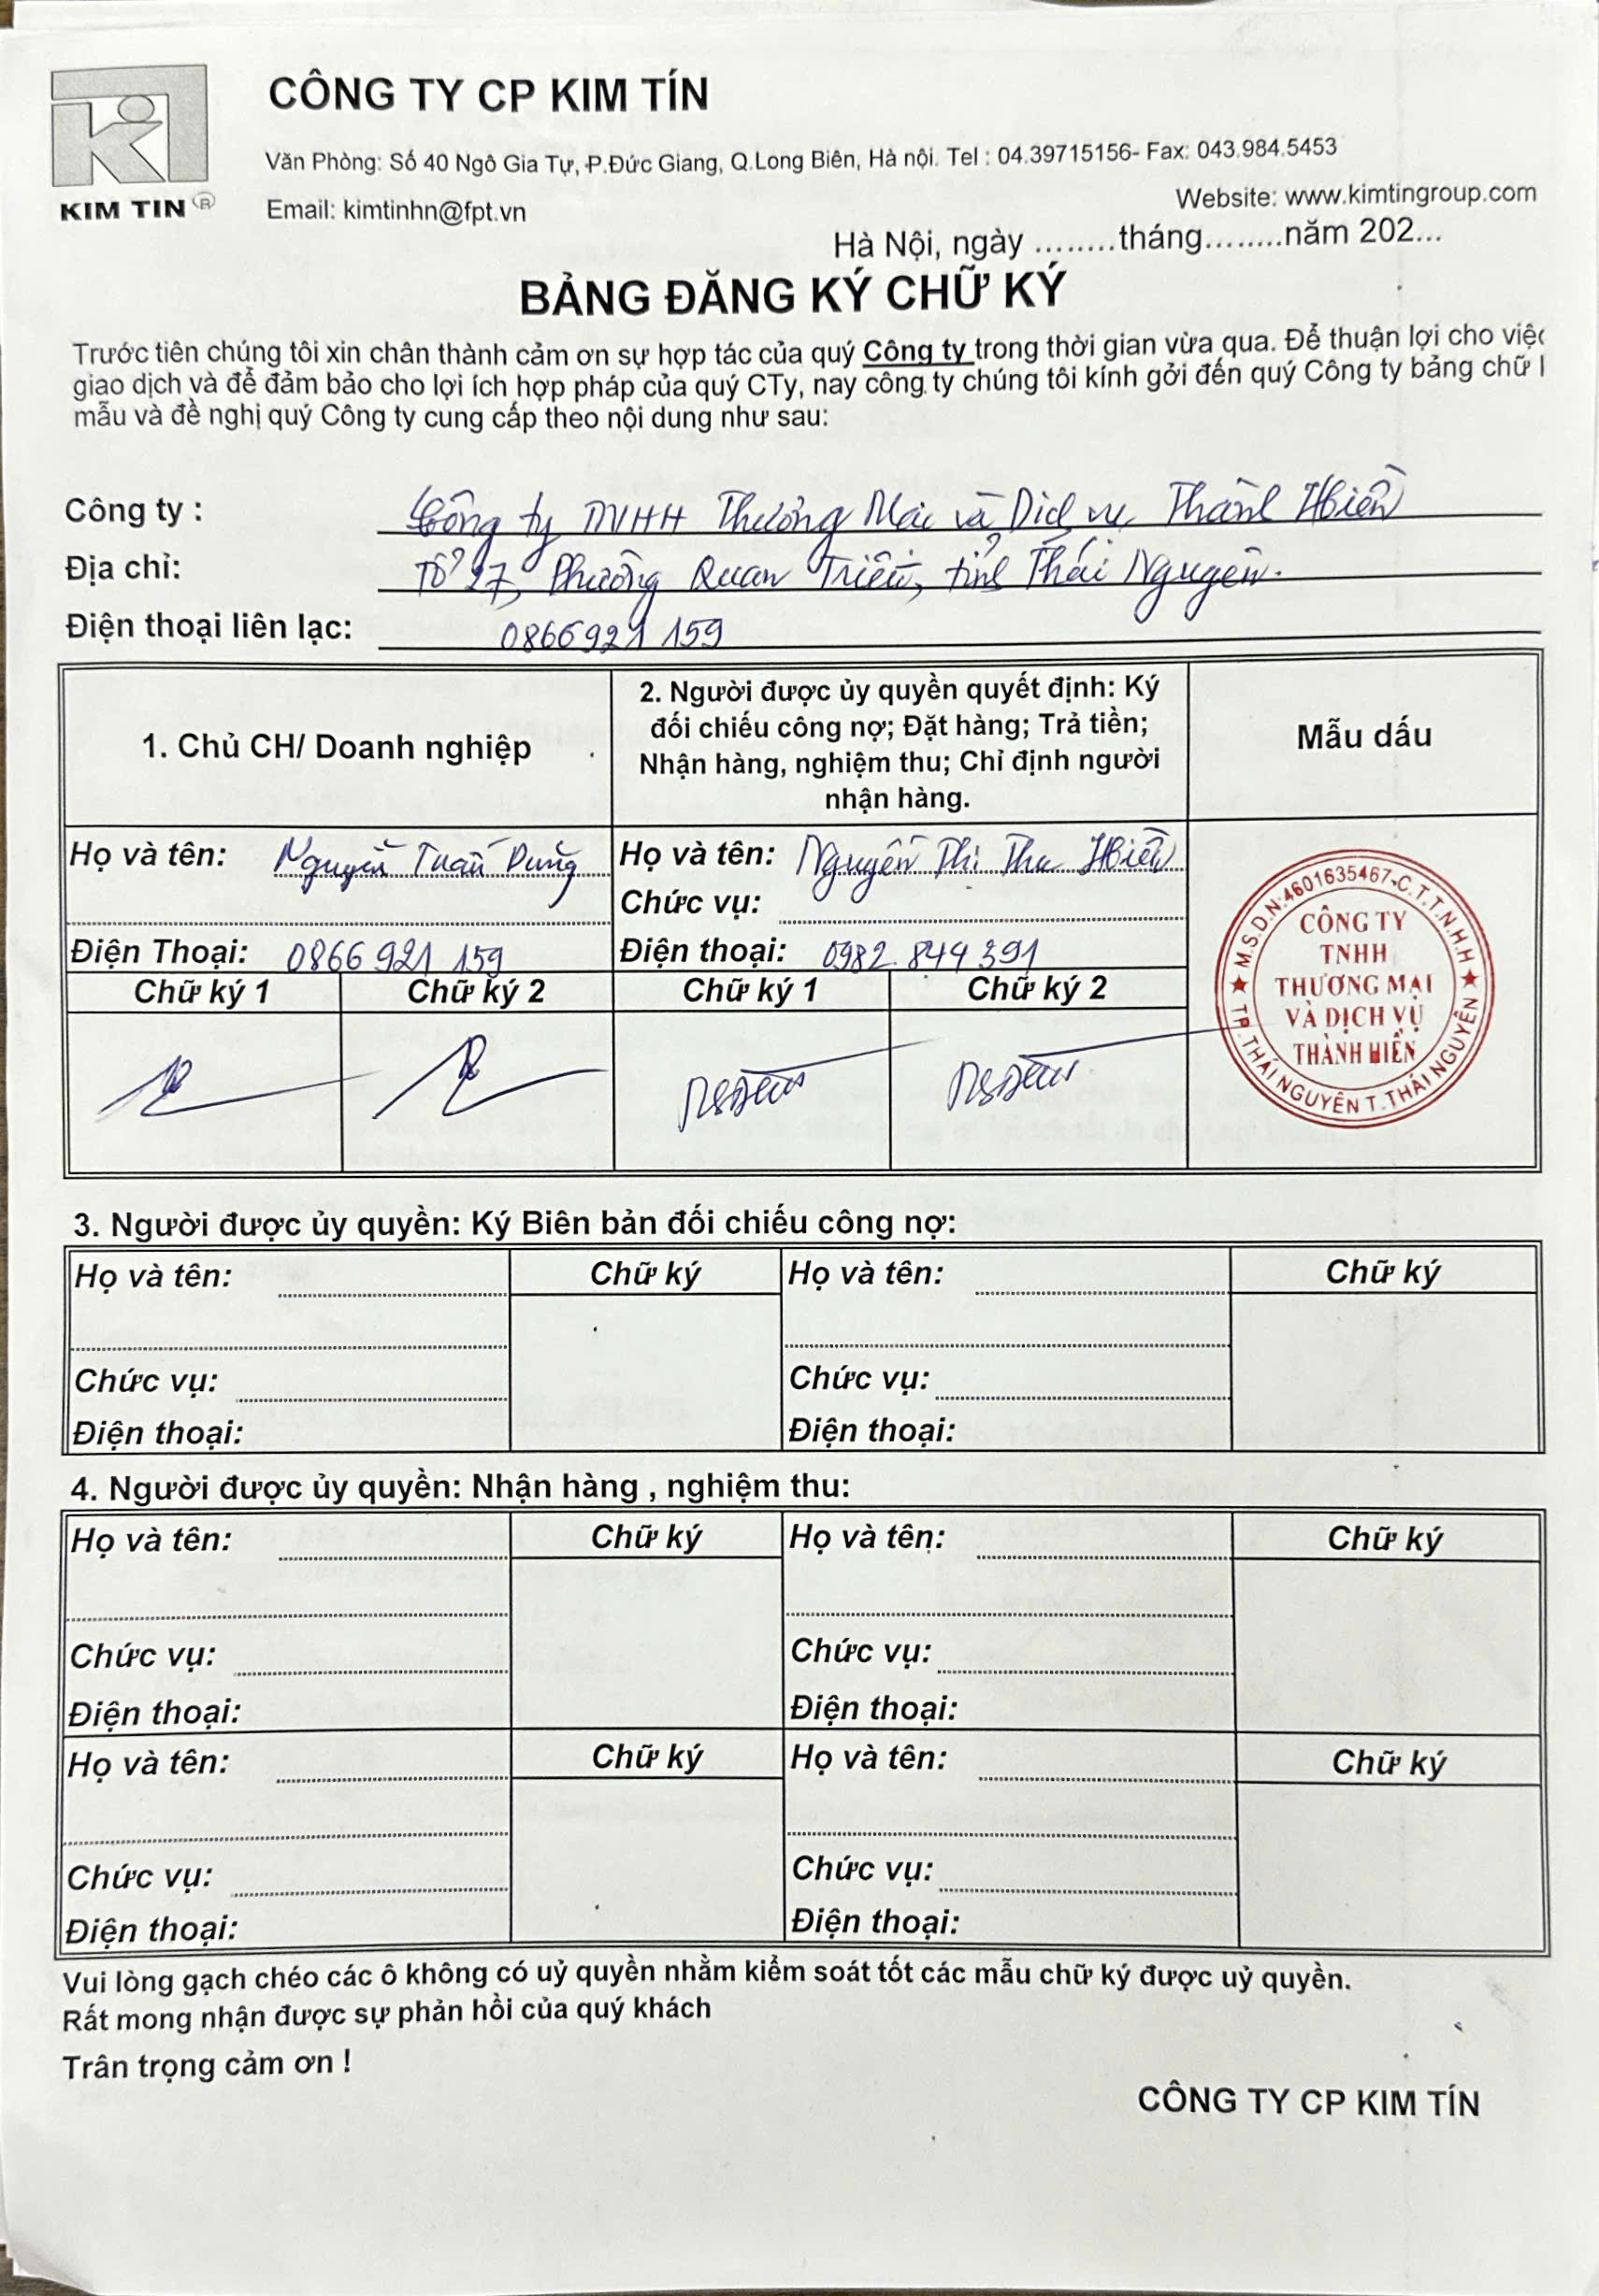 CÔNG TY CP KIM TÍN
Văn Phòng: Số 40 Ngô Gia Tự, P.Đức Giang, Q.Long Biên, Hà nội. Tel : 04.39715156- Fax: 043.984.5453
KIM TIN ®
Email: kimtinhn@fpt.vn
Website: www.kimtingroup.com
Hà Nội, ngày ........tháng........năm 202...
BẢNG ĐĂNG KÝ CHỮ KÝ
Trước tiên chúng tôi xin chân thành cảm ơn sự hợp tác của quý Công ty trong thời gian vừa qua. Để thuận lợi cho việc
giao dịch và để đảm bảo cho lợi ích hợp pháp của quý CTy, nay công ty chúng tôi kính gởi đến quý Công ty bảng chữ
mẫu và đề nghị quý Công ty cung cấp theo nội dung như sau:
Công ty : Công ty TNHH Thương Mại và Dịch vụ Thành Hiền
Địa chỉ: Tổ 27, Phường Quan Triều, tỉnh Thái Nguyên.
Điện thoại liên lạc: 0866921 159
1. Chủ CH/ Doanh nghiệp
2. Người được ủy quyền quyết định: Ký
đối chiếu công nợ; Đặt hàng; Trả tiền;
Nhận hàng, nghiệm thu; Chỉ định người
nhận hàng.
Mẫu dấu
Họ và tên: Nguyễn Tuấn Dũng
Họ và tên: Nguyễn Thị Thu Hiền
Chức vụ:
Điện Thoại: 0866 921 159
Điện thoại: 0982 844 391
Chữ ký 1
Chữ ký 2
Chữ ký 1
Chữ ký 2
M.S.D.N:4601635467-C.T.T.N.H.H
CÔNG TY
TNHH
THƯƠNG MẠI
VÀ DỊCH VỤ
THÀNH HIỀN
TP.THÁI NGUYÊN T.THÁI NGUYÊN
3. Người được ủy quyền: Ký Biên bản đối chiếu công nợ:
Họ và tên:
Chữ ký
Họ và tên:
Chữ ký
Chức vụ:
Chức vụ:
Điện thoại:
Điện thoại:
4. Người được ủy quyền: Nhận hàng , nghiệm thu:
Họ và tên:
Chữ ký
Họ và tên:
Chữ ký
Chức vụ:
Chức vụ:
Điện thoại:
Điện thoại:
Họ và tên:
Chữ ký
Họ và tên:
Chữ ký
Chức vụ:
Chức vụ:
Điện thoại:
Điện thoại:
Vui lòng gạch chéo các ô không có uỷ quyền nhằm kiểm soát tốt các mẫu chữ ký được uỷ quyền.
Rất mong nhận được sự phản hồi của quý khách
Trân trọng cảm ơn !
CÔNG TY CP KIM TÍN